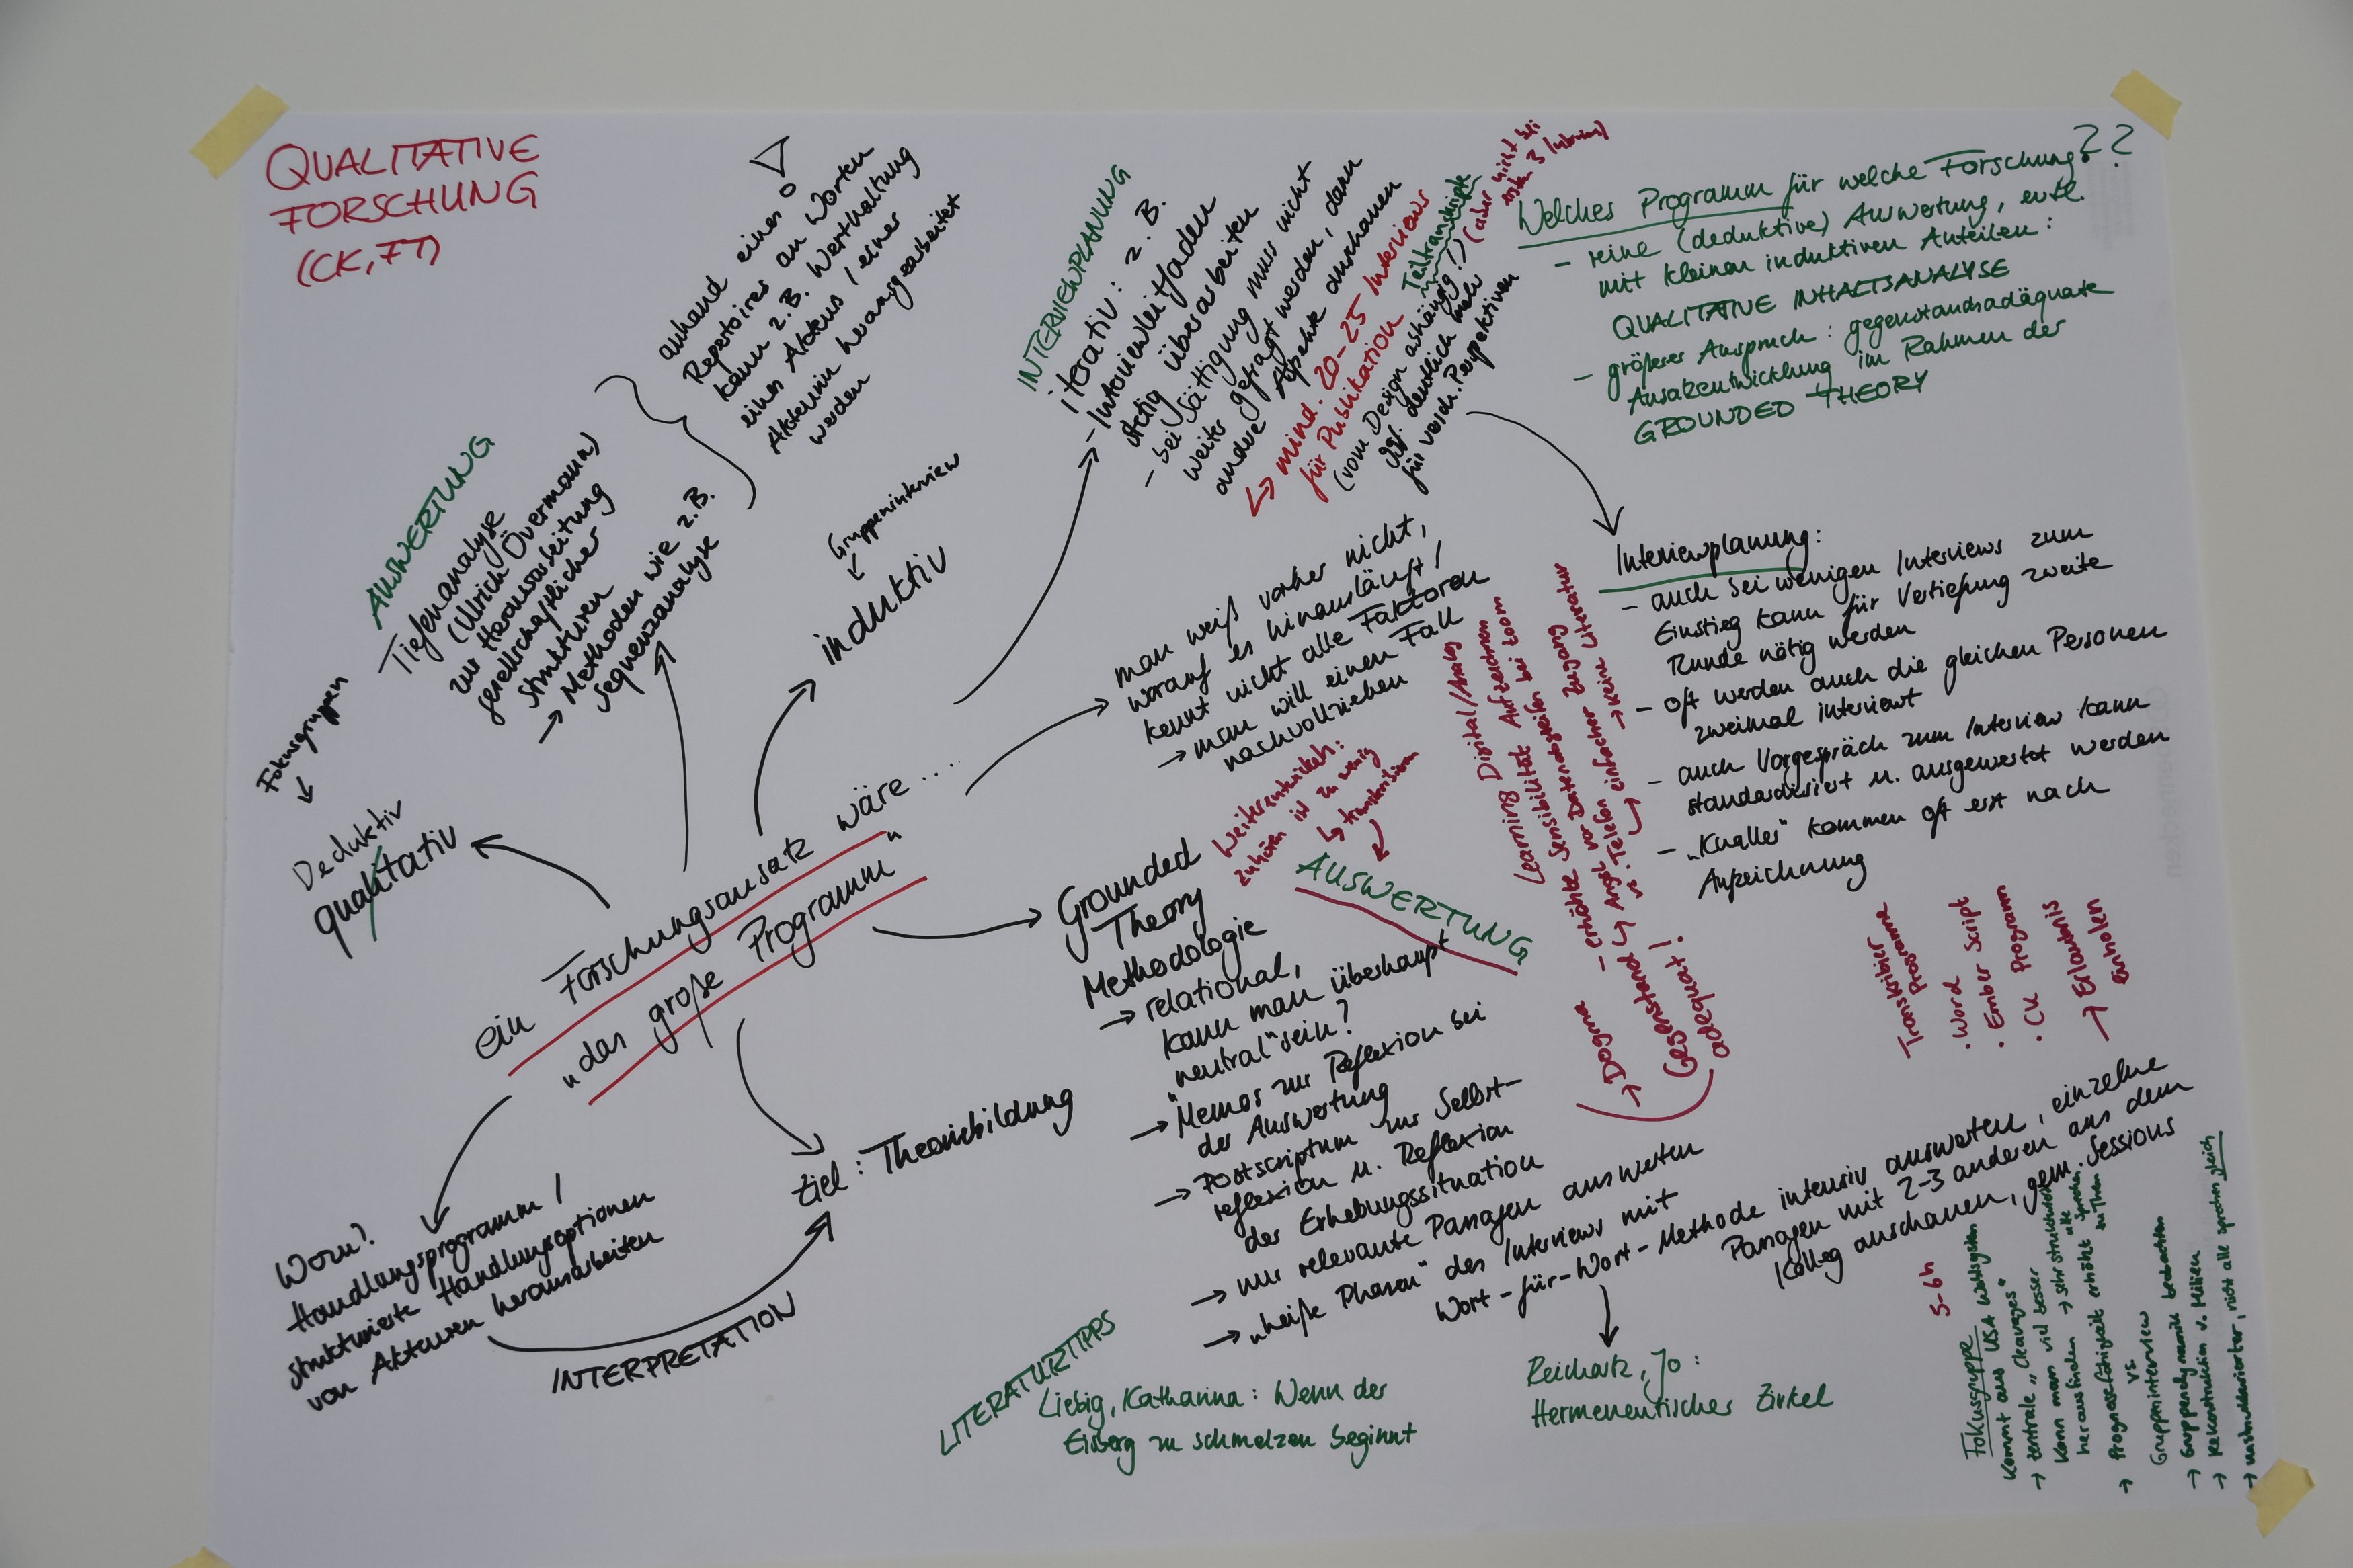 QUALITATIVE
FORSCHUNG
(CK, FT)
AUSWERTUNG
Tiefenanalyse
(Ullrich Övermann)
zur Herausarbeitung
gesellschaftlicher
Strukturen
→ Methoden wie z.B.
Sequenzanalyse
anhand eines
Repertoires an Worten
kann z.B. Werthaltung
eines Akteurs / einer
Akteurin herausgearbeitet
werden
Gruppeninterview
induktiv
Fokusgruppen
Deduktiv
qualitativ
ein Forschungsansatz wäre ....
„das große Programm"
INTERVIEWPLANUNG
iterativ: z.B.
- Interviewleitfaden
stetig überarbeiten
- bei Sättigung muss nicht
weiter gefragt werden, dann
andere Aspekte anschauen
→ mind. 20-25 Interviews
für Publikation
Teiltranskripte
(aber nicht bei
ersten 3 Interviews)
(vom Design abhängig!)
ggf. deutlich mehr
für versch. Perspektiven
Welches Programm für welche Forschung???
- reine (deduktive) Auswertung, evtl.
mit kleinen induktiven Anteilen:
QUALITATIVE INHALTSANALYSE
- größerer Anspruch: gegenstandsadäquate
Ansatzentwicklung im Rahmen der
GROUNDED THEORY
Interviewplanung:
- auch bei wenigen Interviews zum
Einstieg kann für Vertiefung zweite
Runde nötig werden
- oft werden auch die gleichen Personen
zweimal interviewt
- auch Vorgespräch zum Interview kann
standardisiert u. ausgewertet werden
- „Knaller" kommen oft erst nach
Aufzeichnung
man weiß vorher nicht,
worauf es hinausläuft /
kennt nicht alle Faktoren
→ man will einen Fall
nachvollziehen
Weiterentwickeln:
zuhören ist zu wenig
↳ transkribieren
AUSWERTUNG
Learning Digital/Analog
- erhöhte Sensibilität Aufzeichnen bei Zoom
↳ Angst vor Datenabgreifen
vs. Telefon einfacher Zugang
→ keine Literatur
→ Dogma
Gegenstand
adäquat!
Grounded
Theory
Methodologie
→ relational,
kann man überhaupt
„neutral" sein?
→ Memos zur Reflexion bei
der Auswertung
→ Postscriptum zur Selbst-
reflexion u. Reflexion
der Erhebungssituation
→ nur relevante Passagen auswerten
→ „heiße Phasen" des Interviews mit
Wort-für-Wort-Methode intensiv auswerten, einzelne
Passagen mit 2-3 anderen aus dem
Kolleg anschauen, gem. Sessions
Reichartz, Jo:
Hermeneutischer Zirkel
Transkribier
Programme
• Word
• Ember Script
• CK Programm
→ Erlaubnis
einholen
Ziel: Theoriebildung
Worum?
Handlungsprogramm /
strukturierte Handlungsoptionen
von Akteuren herausarbeiten
INTERPRETATION
LITERATURTIPPS
Liebig, Katharina: Wenn der
Eisberg zu schmelzen beginnt
5-6h
Fokusgruppe
kommt aus USA
→ zentrale „Cleavages"
kann man viel besser
herausfinden → sehr strukturiert
→ Prognosefähigkeit erhöht
vs.
Gruppeninterview
→ Gruppendynamik beobachten
→ Rekonstruktion v. Milieu
→ unstrukturierter, nicht alle sprechen gleich